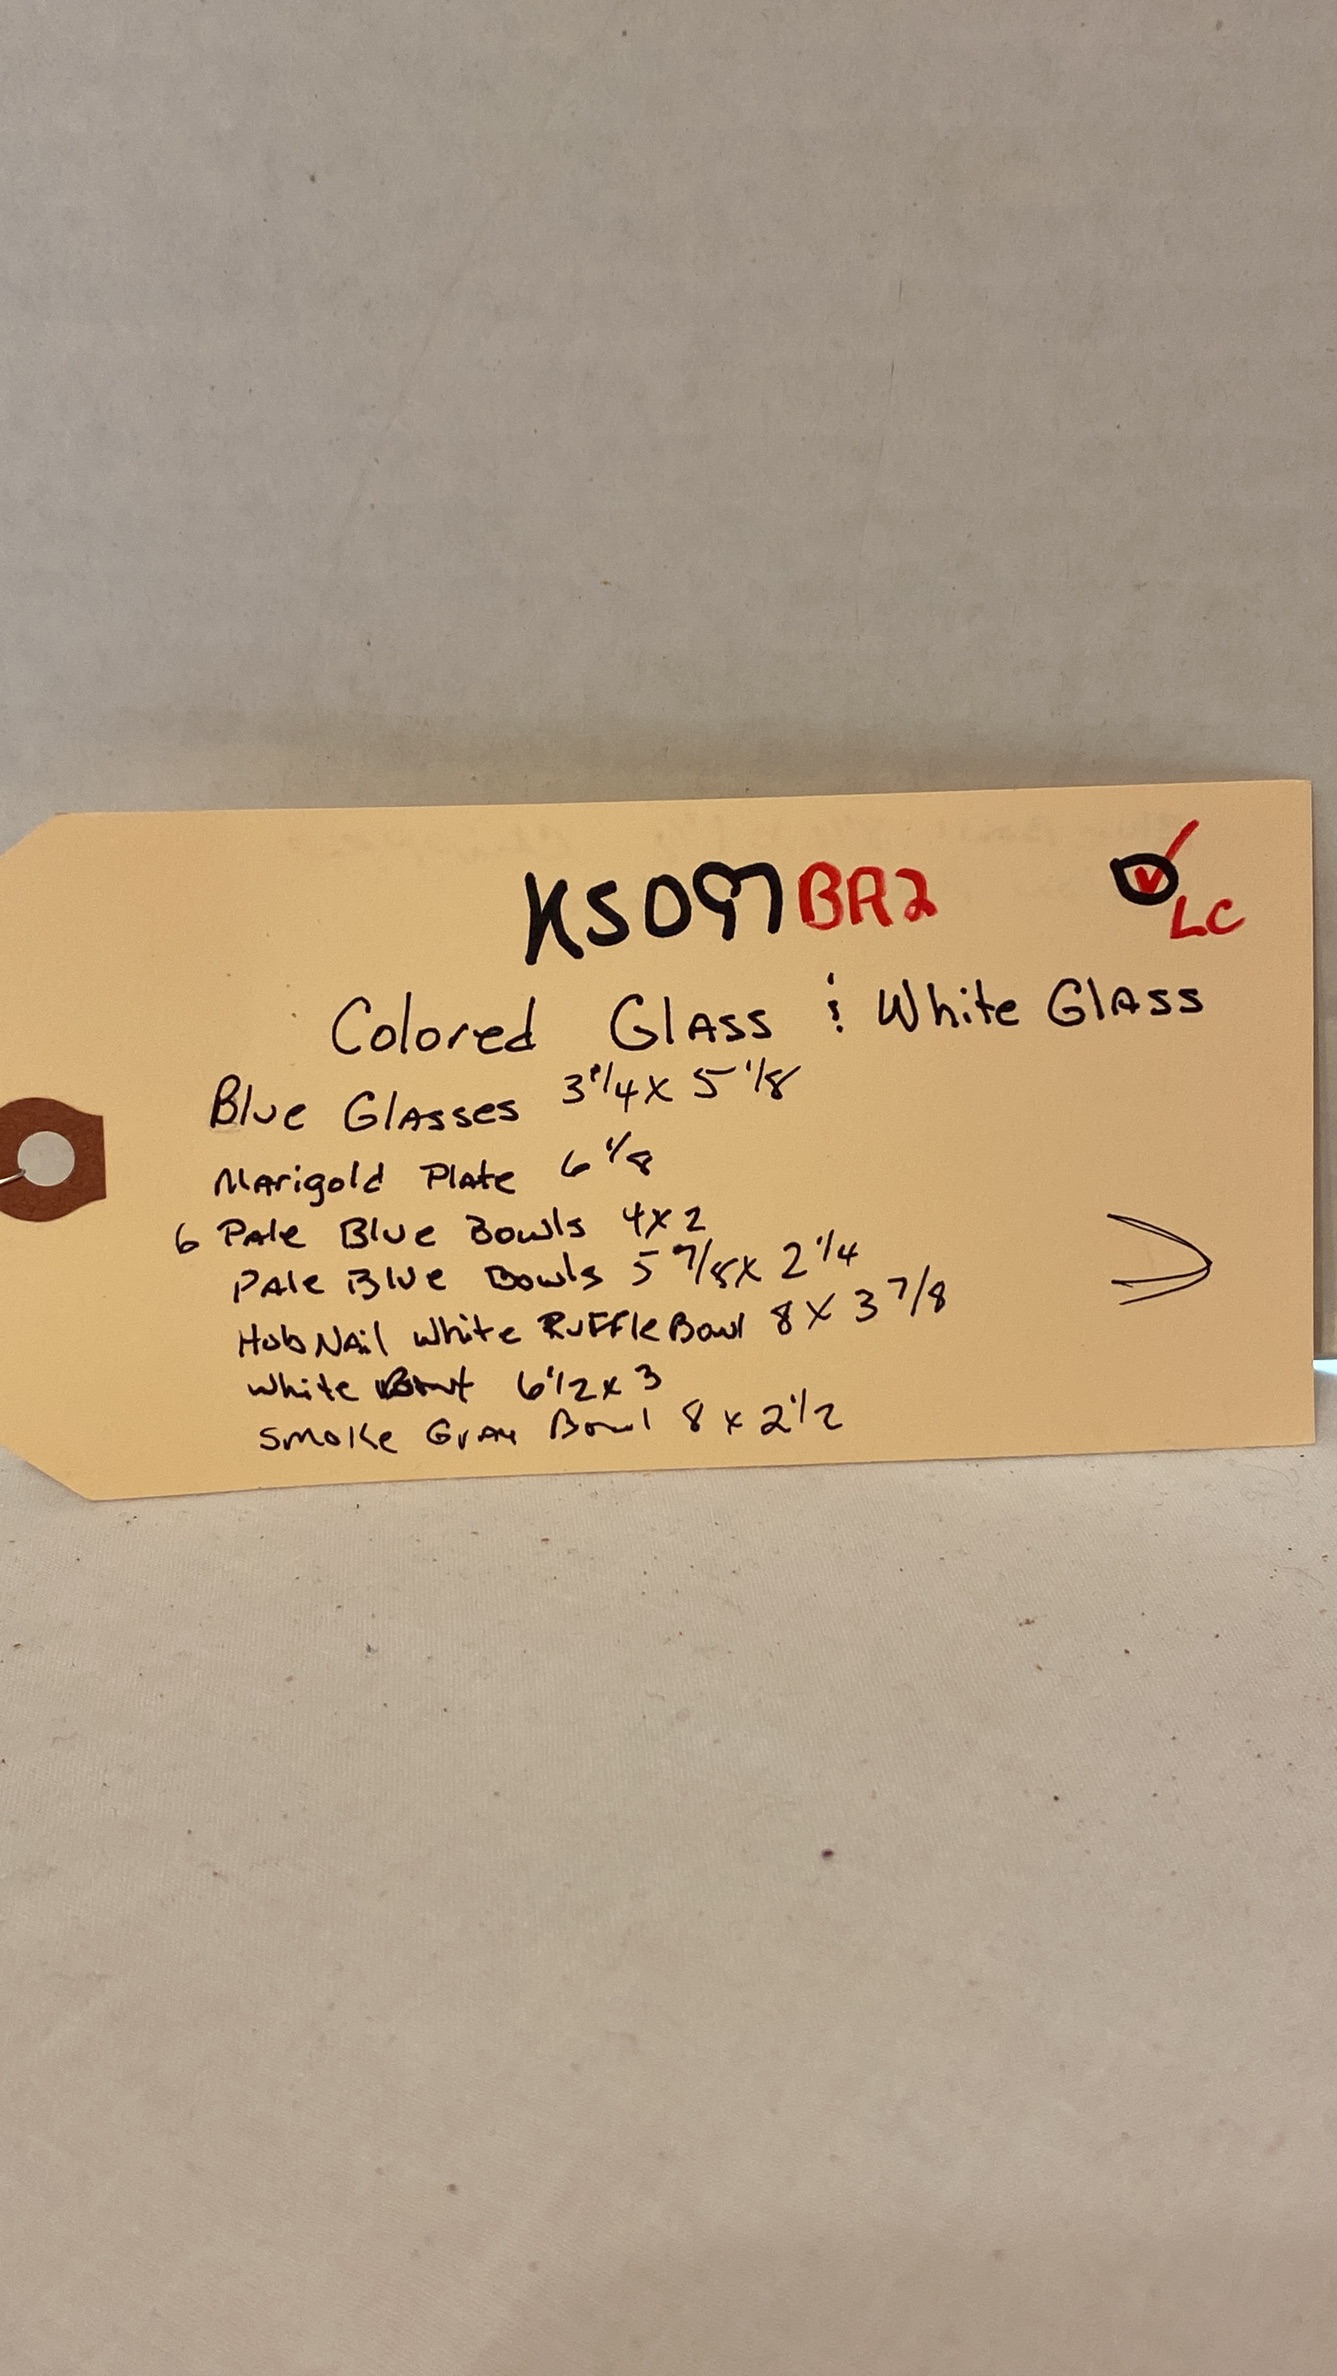 KS097BR2
LC
Colored Glass & White Glass
Blue Glasses 3 1/4 x 5 1/8
Marigold Plate 6 1/8
6 Pale Blue Bowls 4x2
Pale Blue Bowls 5 7/8 x 2 1/4
HobNail White Ruffle Bowl 8 x 3 7/8
White 6 1/2 x 3
Smoke Gray Bowl 8 x 2 1/2